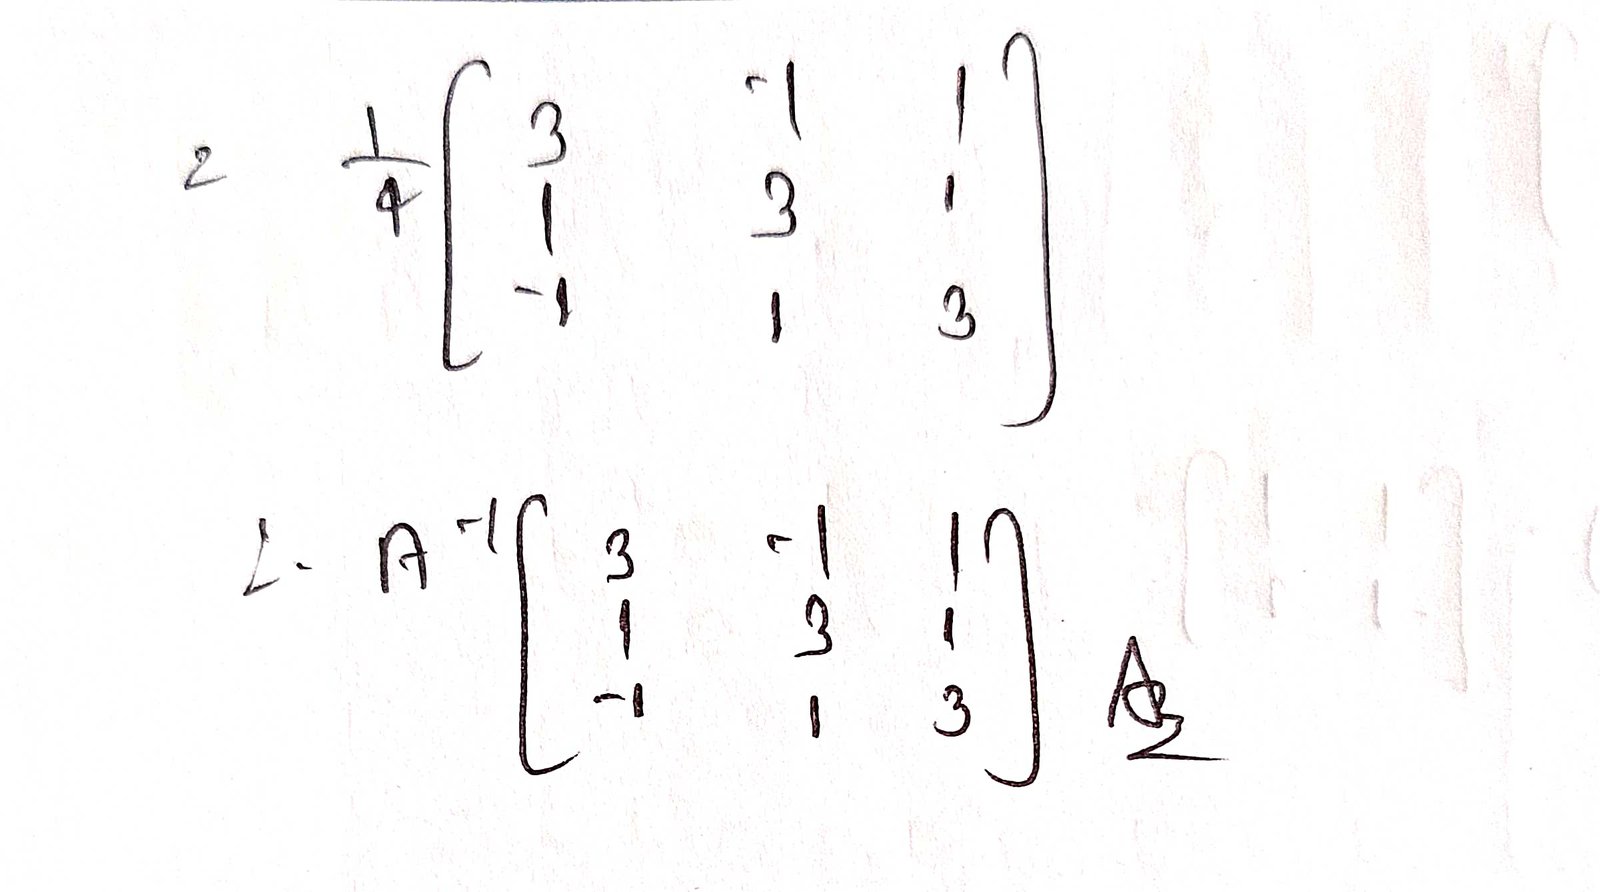 = 1/4 [ 3 -1 1
1 3 1
-1 1 3 ]
∴ A⁻¹ [ 3 -1 1
1 3 1
-1 1 3 ]